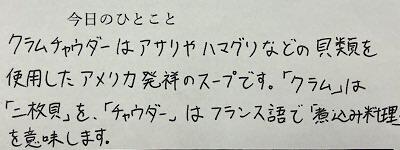 今日のひとこと
クラムチャウダーはアサリやハマグリなどの貝類を
使用したアメリカ発祥のスープです。「クラム」は
「二枚貝」を、「チャウダー」はフランス語で「煮込み料理」
を意味します。